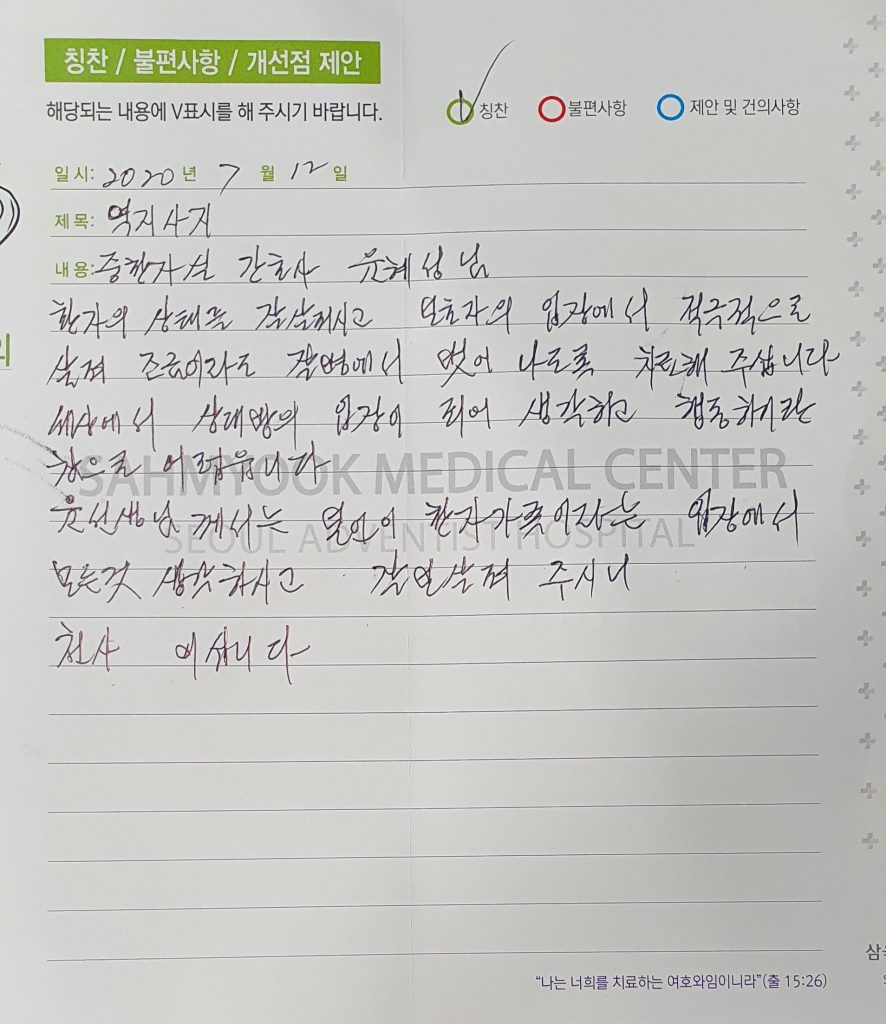 칭찬 / 불편사항 / 개선점 제안
해당되는 내용에 V표시를 해 주시기 바랍니다.
칭찬 불편사항 제안 및 건의사항
일시: 2020 년 7 월 12 일
제목: 역지사지
내용: 중환자실 간호사 윤혜성님
환자의 상태를 잘살펴시고 보호자의 입장에서 적극적으로
살펴 조금이라도 질병에서 벗어 나도록 치료해 주십니다
세상에서 상대방의 입장이 되어 생각하고 행동하기란
참으로 어렵습니다
SAHMYOOK MEDICAL CENTER
윤선생님 께서는 본인이 환자가족이라는 입장에서
SEOUL ADVENTIST HOSPITAL
모든것 생각하시고 잘보살펴 주시니
천사 이십니다
“나는 너희를 치료하는 여호와임이니라”(출 15:26)